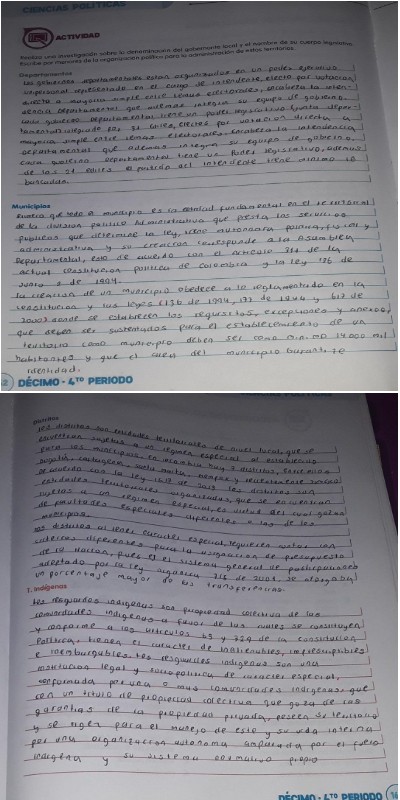 CIENCIAS POLÍTICAS
ACTIVIDAD
Realiza una investigación sobre la denominación del gobernante local y el nombre de su cuerpo legislativo.
Escribe por menores de la organización política para la administración de estos territorios.
Departamentos
Los gobiernos departamentales estan organizados en un poder ejecutivo
unipersonal representado en el cargo de intendente, electo por votacion
directa a mayoria simple entre lemas electorales, encabeza la inten-
dencia departamental que ademas integra su equipo de gobierno
cada gobierno departamental tiene un poder legislativo (junta depar-
tamental) integrado por 31 ediles, electos por votacion directa a
mayoria simple entre lemas electorales, encabeza la intendencia
departamental que ademas integra su equipo de gobierno.
cada gobierno departamental tiene un poder legislativo, ademas
de los 31 ediles el partido del intendente tiene minimo 16
bancadas.
Municipios
que todo el municipio es la entidad fundamental en el territorial
de la division politico Administrativa que presta los servicios
publicos que determine la ley, como autonomia politica, fiscal y
administrativa y su creacion corresponde a la Asamblea
Departamental, esto de acuerdo con el articulo 311 de la
actual constitucion politica de Colombia y la ley 136 de
Junio 2 de 1994.
la creacion de un municipio obedece a lo reglamentado en la
constitucion y las leyes 6136 de 1994, 177 de 1994 y 617 de
2000, donde se establecen los requisitos, excepciones y anexos,
que deben ser sustentados para el establecimiento de un
territorio como municipio deben ser como minimo 14000 mil
habitantes y que el del municipio garantice
identidad.
2 DÉCIMO - 4TO PERIODO
Distritos
Los distritos son entidades territoriales de nivel local, que se
encuentran sujetas a un regimen especial al establecido
para los municipios en colombia hay 7 distritos,
Bogota, cartagena, santa marta,
De acuerdo con la ley 1617 de 2013 los distritos son
entidades territoriales organizadas, que se encuentran
sujetas a un regimen especial, en virtud del cual gozan
de facultades especiales diferentes a las de los
municipios.
los distritos al tener caracter especial, requieren contar con
criterios diferentes para la asignacion de presupuesto
de la nacion, pues el sistema general de participaciones
adoptado por la ley organica 715 de 2001, se
un porcentaje mayor de las transferencias
3. Indígenas
Los resguardos indigenas son propiedad colectiva de las
comunidades indigenas a favor de las cuales se constituyen
y conforme a los articulos 63 y 329 de la constitucion
Politica, tienen el caracter de inalienables, imprescriptibles
e inembargables. los resguardos indigenas son una
institucion legal y sociopolitica de caracter especial,
conformada por una o mas comunidades indigenas, que
con un titulo de propiedad colectiva que goza de las
garantias de la propiedad privada, poseen su territorio
y se rigen para el manejo de este y su vida interna
por una organizacion autonoma amparada por el fuero
indigena y su sistema normativo propio
DÉCIMO - 4TO PERIODO